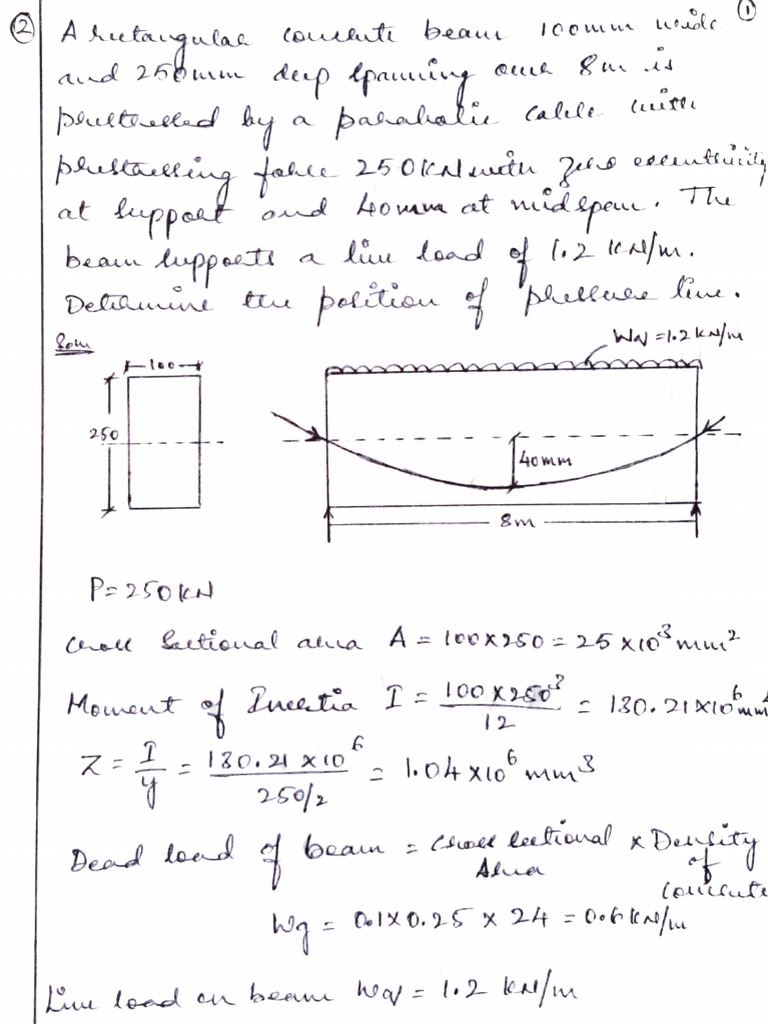 ①
② A rectangular concrete beam 100mm wide
and 250mm deep spanning over 8m is
prestressed by a parabolic cable with
prestressing force 250KN with zero eccentricity
at support and 40mm at midspan. The
beam supports a live load of 1.2 KN/m.
Determine the position of pressure line.
Soln
100
Wq = 1.2 KN/m
250
40mm
8m
P = 250KN
Cross Sectional area A = 100 × 250 = 25 × 10³ mm²
Moment of Inertia I = 100 × 250³ / 12 = 130.21 × 10⁶ mm⁴
Z = I / y = 130.21 × 10⁶ / 250/2 = 1.04 × 10⁶ mm³
Dead load of beam = Cross sectional Area × Density of concrete
Wg = 0.1 × 0.25 × 24 = 0.6 KN/m
Live load on beam Wq = 1.2 KN/m